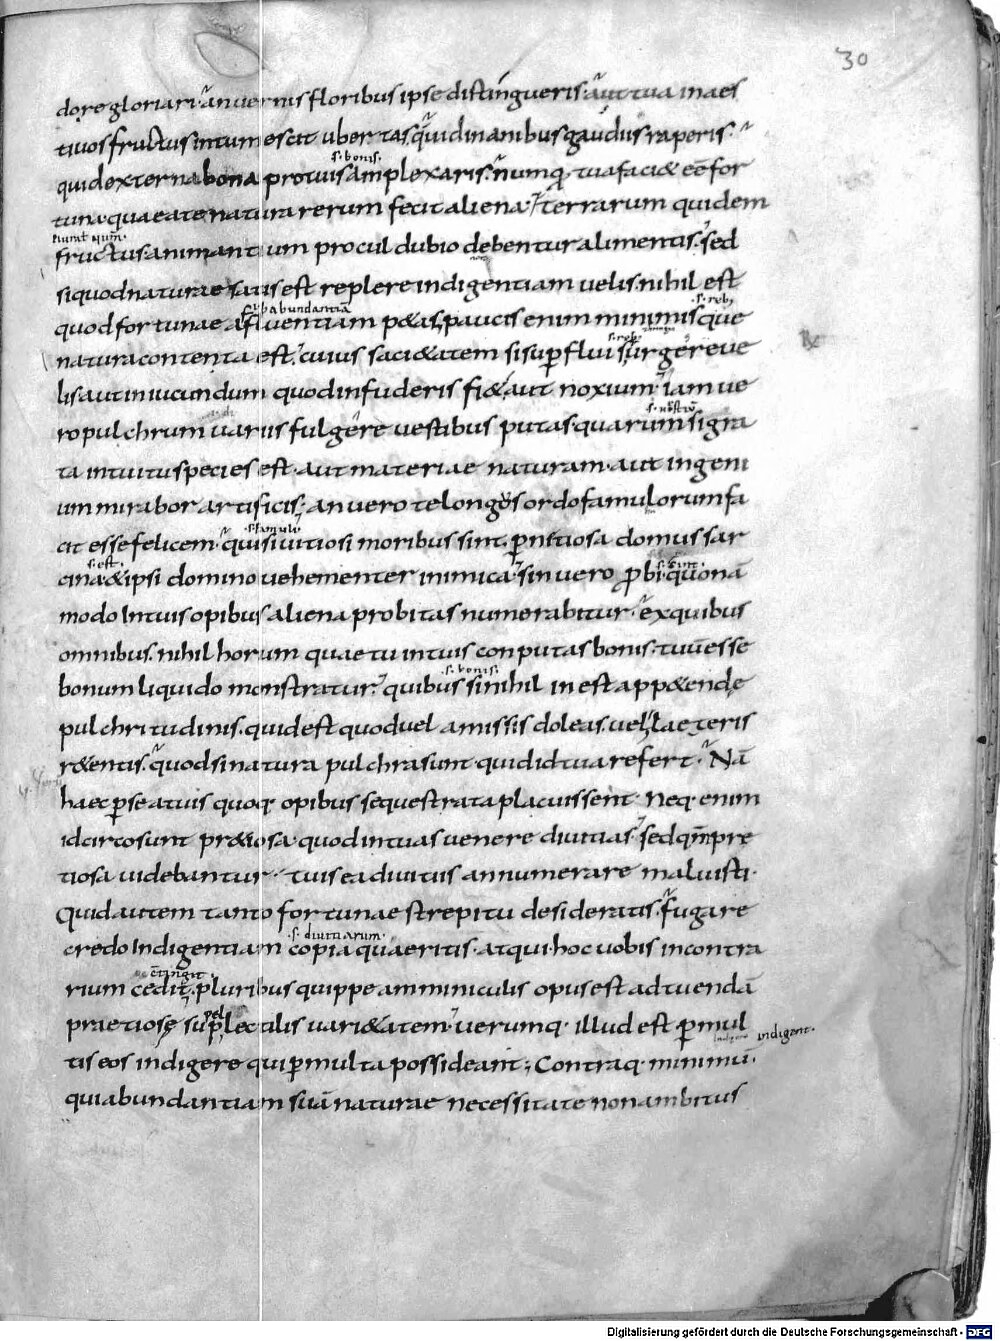 30
dore gloriari· an uernis floribus ipse distingueris· aut tua in aes
tiuos fructus intumescit ubertas· quid inanibus gaudiis raperis·
s. bonis.
quid externa bona pro tuis amplexaris· numq· tua faci& eē for
tuna· quae a te natura rerum fecit aliena· terrarum quidem
fructus animantium procul dubio debentur alimentis· sed
si quod naturae satis est replere indigentiam uelis· nihil est
abundantiā
s. reb;
quod fortunae affluentiam p&as· paucis enim minimisque
natura contenta est· cuius saci&atem si suꝑfluis urgere ue
lis aut iniucundum quod infuderis fi& aut noxium· iam ue
ro pulchrum uariis fulgere uestibus putas· quarum si gra
ta intuitu species est· aut materiae naturam· aut ingeni
um mirabor artificis· an uero te longus ordo famulorum fa
s. famuli
cit esse felicem· qui si uitiosi moribus sint· ꝑnitiosa domus sar
s. est
s. sint.
cina & ipsi domino uehementer inimica· sin uero ꝓbi· quonā
modo In tuis opibus aliena probitas numerabitur· ex quibus
omnibus· nihil horum quae tu in tuis conputas bonis· tuū esse
s. bonis.
bonum liquido monstratur· quibus si nihil inest app&endę
pulchritudinis· quid est quod uel amissis doleas· uel laeteris
r&entis· quod si natura pulchra sunt quid id tua refert· Nā
haec ꝑ se a tuis quoq· opibus sequestrata placuissent· Neq· enim
idcirco sunt pr&iosa· quod in tuas uenere diuitias· sed qm̄ pre
tiosa uidebantur· tuis ea diuitiis annumerare maluisti·
Quid autem tanto fortunae strepitu desideratis· fugare
s. diuitiarum·
credo Indigentiam copia quaeritis· atqui hoc uobis in contra
ctingit·
rium cedit· pluribus quippe amminiculis opus est ad tuendā
pel
praetiosę suplectilis uari&atem· uerumq· illud est ꝑmul
indigent·
tis eos indigere qui ꝑmulta possideant; Contraq· minimū·
qui abundantiam suā naturae necessitate non ambitus
Digitalisierung gefördert durch die Deutsche Forschungsgemeinschaft - DFG